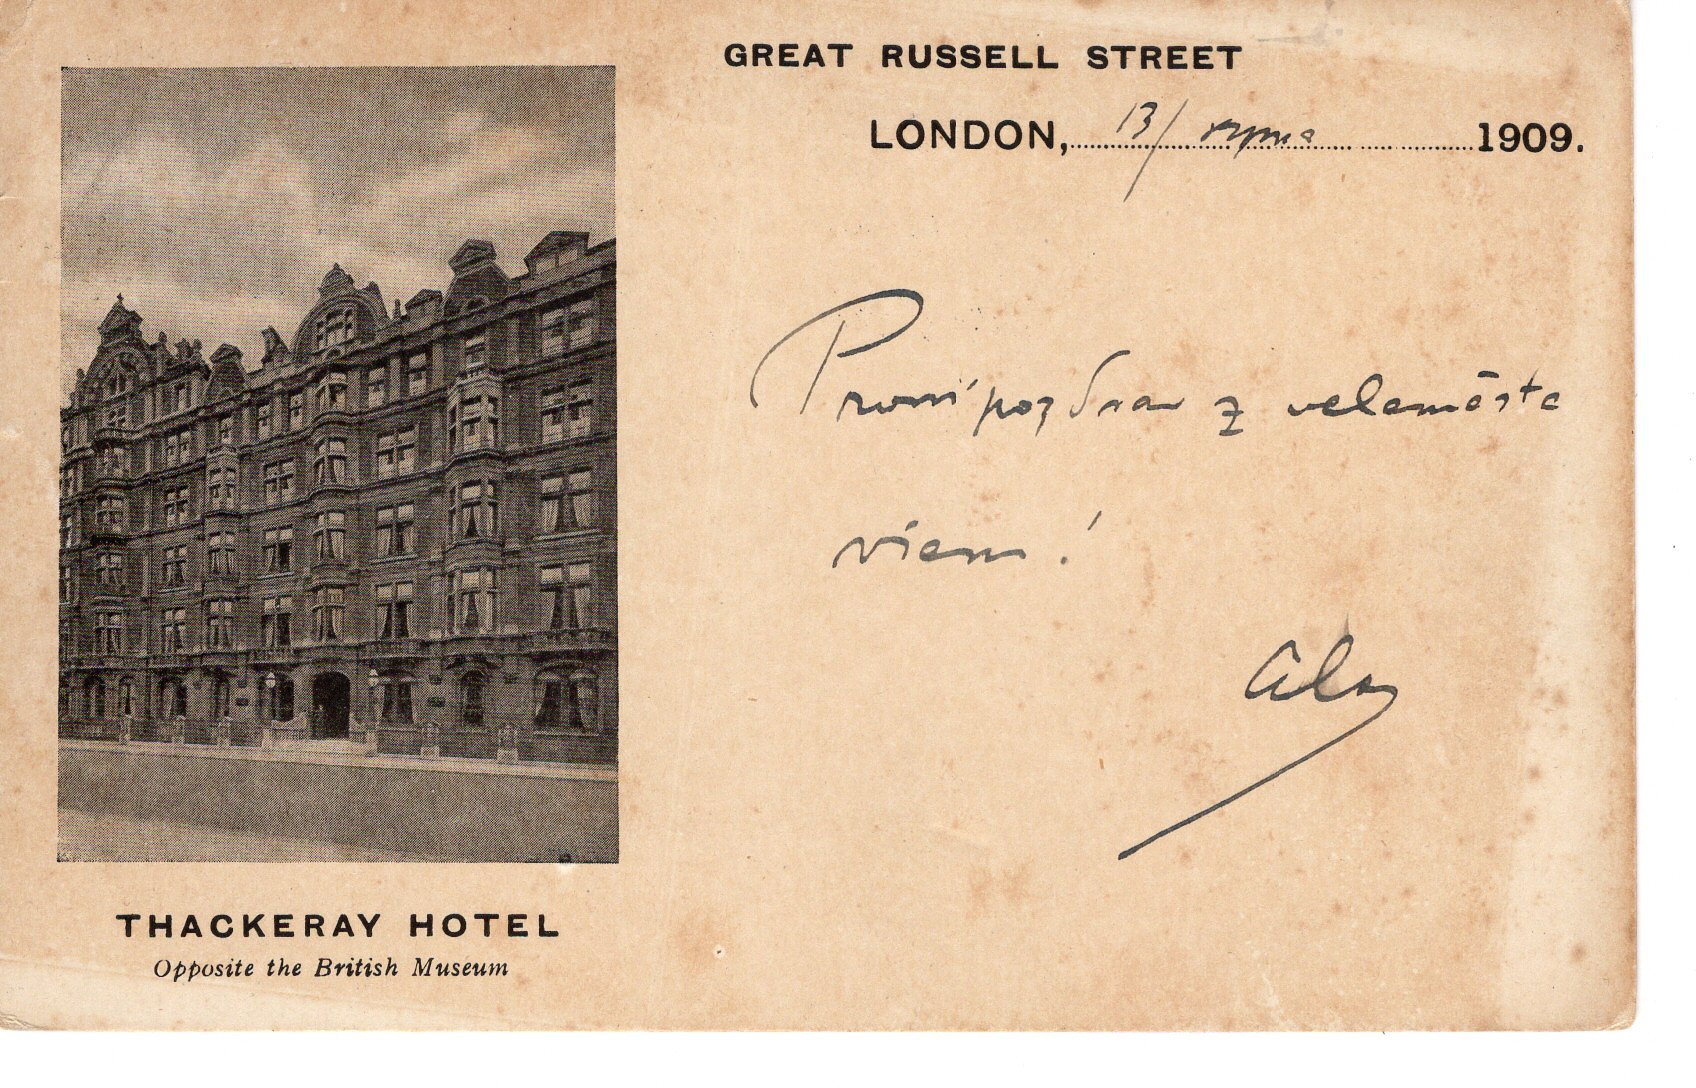 GREAT RUSSELL STREET
LONDON, 13/ srpna 1909.
První pozdrav z veleměsta
všem!
THACKERAY HOTEL
Opposite the British Museum